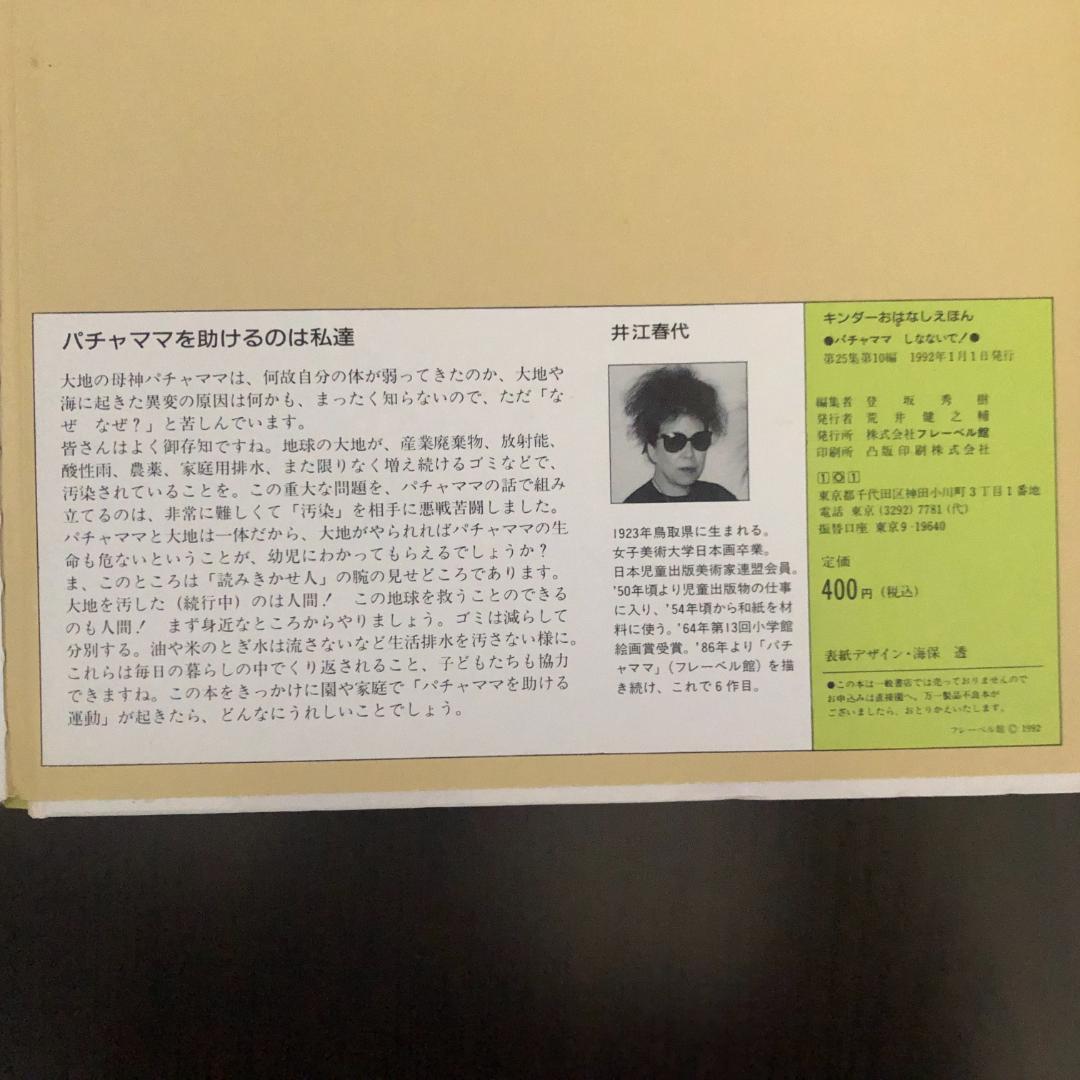 パチャママを助けるのは私達
大地の母神パチャママは、何故自分の体が弱ってきたのか、大地や
海に起きた異変の原因は何かも、まったく知らないので、ただ「な
ぜ　なぜ？」と苦しんでいます。
皆さんはよく御存知ですね。地球の大地が、産業廃棄物、放射能、
酸性雨、農薬、家庭用排水、また限りなく増え続けるゴミなどで、
汚染されていることを。この重大な問題を、パチャママの話で組み
立てるのは、非常に難しくて「汚染」を相手に悪戦苦闘しました。
パチャママと大地は一体だから、大地がやられればパチャママの生
命も危ないということが、幼児にわかってもらえるでしょうか？
ま、このところは「読みきかせ人」の腕の見せどころであります。
大地を汚した（続行中）のは人間！　この地球を救うことのできる
のも人間！　まず身近なところからやりましょう。ゴミは減らして
分別する。油や米のとぎ水は流さないなど生活排水を汚さない様に。
これらは毎日の暮らしの中でくり返されること、子どもたちも協力
できますね。この本をきっかけに園や家庭で「パチャママを助ける
運動」が起きたら、どんなにうれしいことでしょう。
井江春代
1923年鳥取県に生まれる。
女子美術大学日本画卒業。
日本児童出版美術家連盟会員。
'50年頃より児童出版物の仕事
に入り、'54年頃から和紙を材
料に使う。'64年第13回小学館
絵画賞受賞。'86年より「パチ
ャママ」（フレーベル館）を描
き続け、これで6作目。
キンダーおはなしえほん
●パチャママ　しなないで！●
第25集第10編　1992年1月1日発行
編集者　登坂秀樹
発行者　荒井健之輔
発行所　株式会社フレーベル館
印刷所　凸版印刷株式会社
101
東京都千代田区神田小川町3丁目1番地
電話　東京(3292)7781(代)
振替口座　東京9-19640
定価
400円（税込）
表紙デザイン・海保　透
●この本は一般書店では売っておりませんので
お申込みは直接園へ。万一製品不良本が
ございましたら、おとりかえいたします。
フレーベル館 © 1992